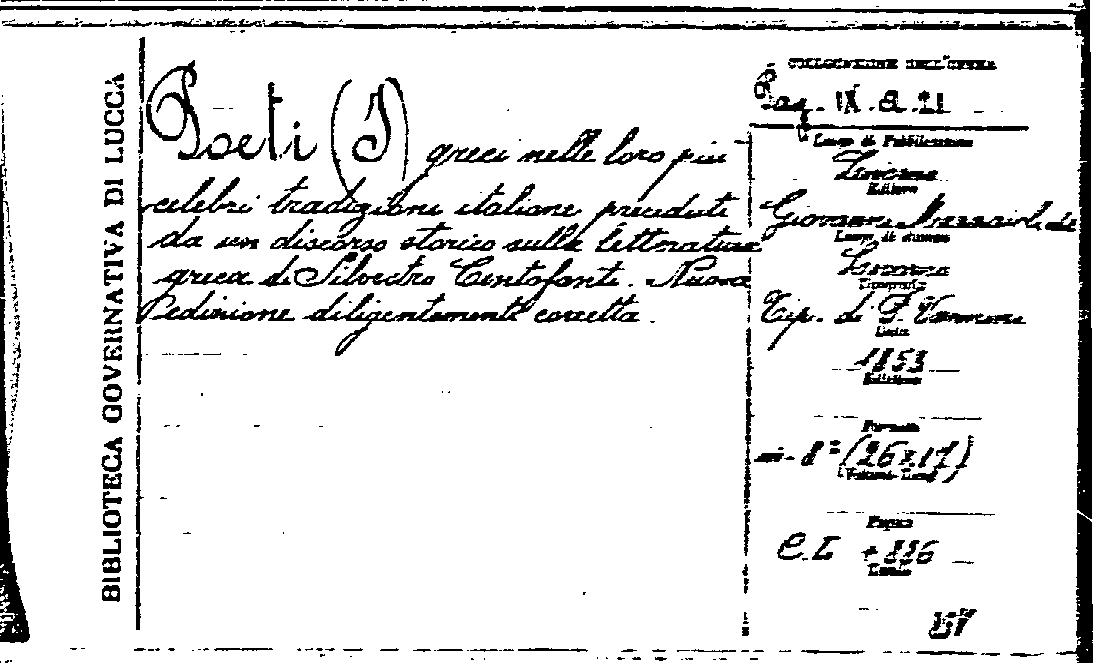 BIBLIOTECA GOVERNATIVA DI LUCCA
Poeti (I) greci nelle loro più
celebri tradizioni italiane preceduti
da un discorso storico sulla letteratura
greca di Silvestro Centofanti. Nuova
edizione diligentemente corretta.
COLLOCAZIONE DELL'OPERA
IX. 21
Luogo di Pubblicazione
Editore
Giovanni
Luogo di stampa
Livorno
Tipografia
Tip. di F. Vannini
Data
1853
Edizione
Formato
in-8° (26x17)
Pagine
+ 886